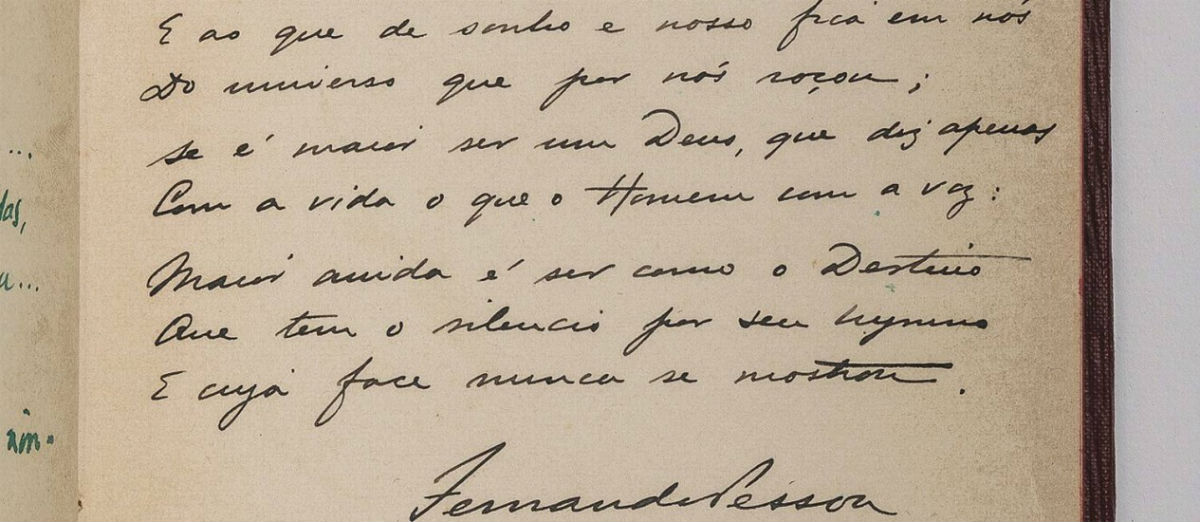 E ao que de sonho e nosso fica em nós
Do universo que por nós roçou;
Se é maior ser um Deus, que diz apenas
Com a vida o que o Homem com a voz:
Maior ainda é ser como o Destino
Que tem o silencio por seu hymno
E cuja face nunca se mostrou.
Fernando Pessoa
...
das,
u...
ain-